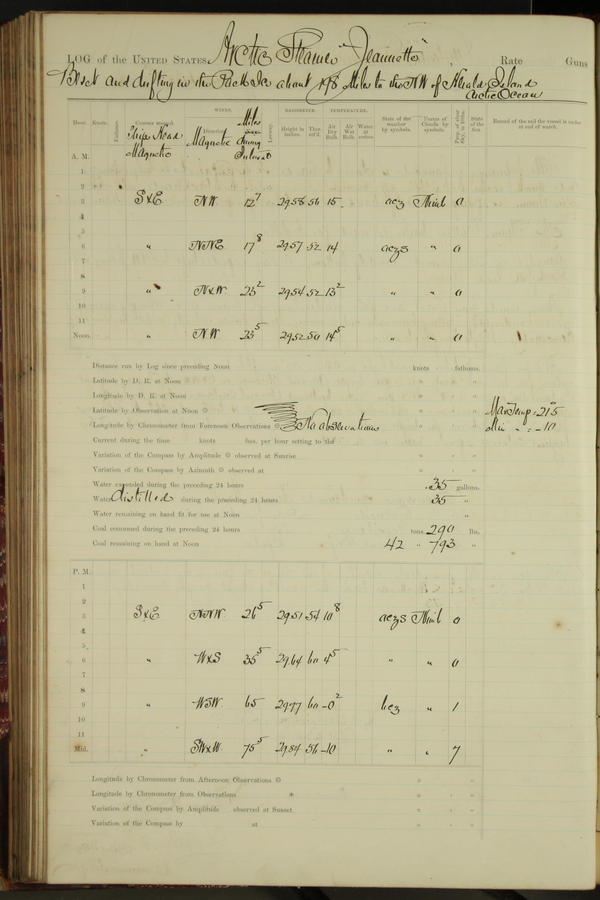 LOG of the UNITED STATES Arctic Steamer "Jeannette" Rate Guns
Beset and drifting in the Pack Ice about 198 Miles to the NW of Herald Island
Arctic Ocean
WINDS. BAROMETER. TEMPERATURE.
Hour. Knots. Fathoms. Courses steered. Ships Head Magnetic Direction. Magnetic Miles during Interval Leeway. Height in inches. Ther. att'd. Air Dry Bulb. Air Wet Bulb. Water at surface. State of the weather by symbols. Forms of Clouds by symbols. State of the Sea. Record of the sail the vessel is under at end of watch.
A. M.
1
2
3 SxE NW 12⁷ 29.58 56 15 acz Thick 0
4
5
6 " NNE 17⁸ 29.57 52 14 aczs " 0
7
8
9 " NxW 23² 29.54 52 13² " " 0
10
11
Noon " NW 23⁵ 29.52 50 14⁵ " " 0
Distance run by Log since preceding Noon knots fathoms.
Latitude by D. R. at Noon
Longitude by D. R. at Noon
Latitude by Observation at Noon Max Temp = 21.5
Longitude by Chronometer from Forenoon Observations No observations Min " = -10
Current during the time knots fms. per hour setting to the
Variation of the Compass by Amplitude observed at Sunrise
Variation of the Compass by Azimuth observed at
Water expended during the preceding 24 hours 35 gallons.
Water distilled during the preceding 24 hours 35 "
Water remaining on hand fit for use at Noon "
Coal consumed during the preceding 24 hours tons 290 lbs.
Coal remaining on hand at Noon 42 " 793 "
P. M.
1
2
3 SxE NNW 26⁵ 29.51 54 10⁸ aczs Thick 0
4
5
6 " WxS 35⁵ 29.64 60 4⁵ " " 0
7
8
9 " WSW 65 29.77 60 -0² bcz " 1
10
11
Mid. " SWxW 75⁵ 29.84 56 -10 " " 7
Longitude by Chronometer from Afternoon Observations
Longitude by Chronometer from Observations *
Variation of the Compass by Amplitude observed at Sunset
Variation of the Compass by at